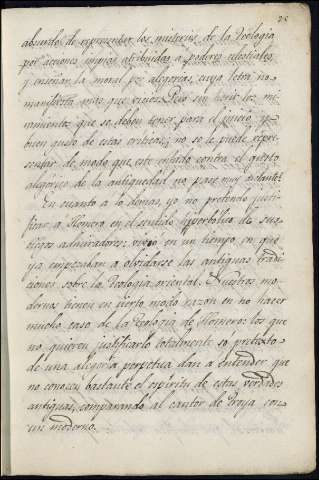 25
absurdo de representar los misterios de la Teologia
por acciones impias atribuidas a poderes celestiales,
y enseñar la moral por alegorias, cuya letra no
manifiesta mas que vicios. Pero sin herir los mi-
ramientos que se deben tener para el juicio, y
buen gusto de estos criticos; no se le puede repre-
sentar de modo que este enfado contra el gusto
alegorico de la antiguedad no pase muy adelante?
En cuanto a lo demas, yo no pretendo justi-
ficar a Homero en el sentido hiperbolico de sus
ciegos admiradores: vivió en un tiempo, en que
ya empezaban a olvidarse las antiguas tradi-
ciones sobre la Teologia oriental. Nuestros mo-
dernos tienen en cierto modo razon en no hacer
mucho caso de la Teologia de Homero: los que
no quieren justificarlo totalmente so pretexto
de una alegoria perpetua dan a entender que
no conocen bastante el espiritu de estas verdades
antiguas, comparando al cantor de Troya con
un moderno.